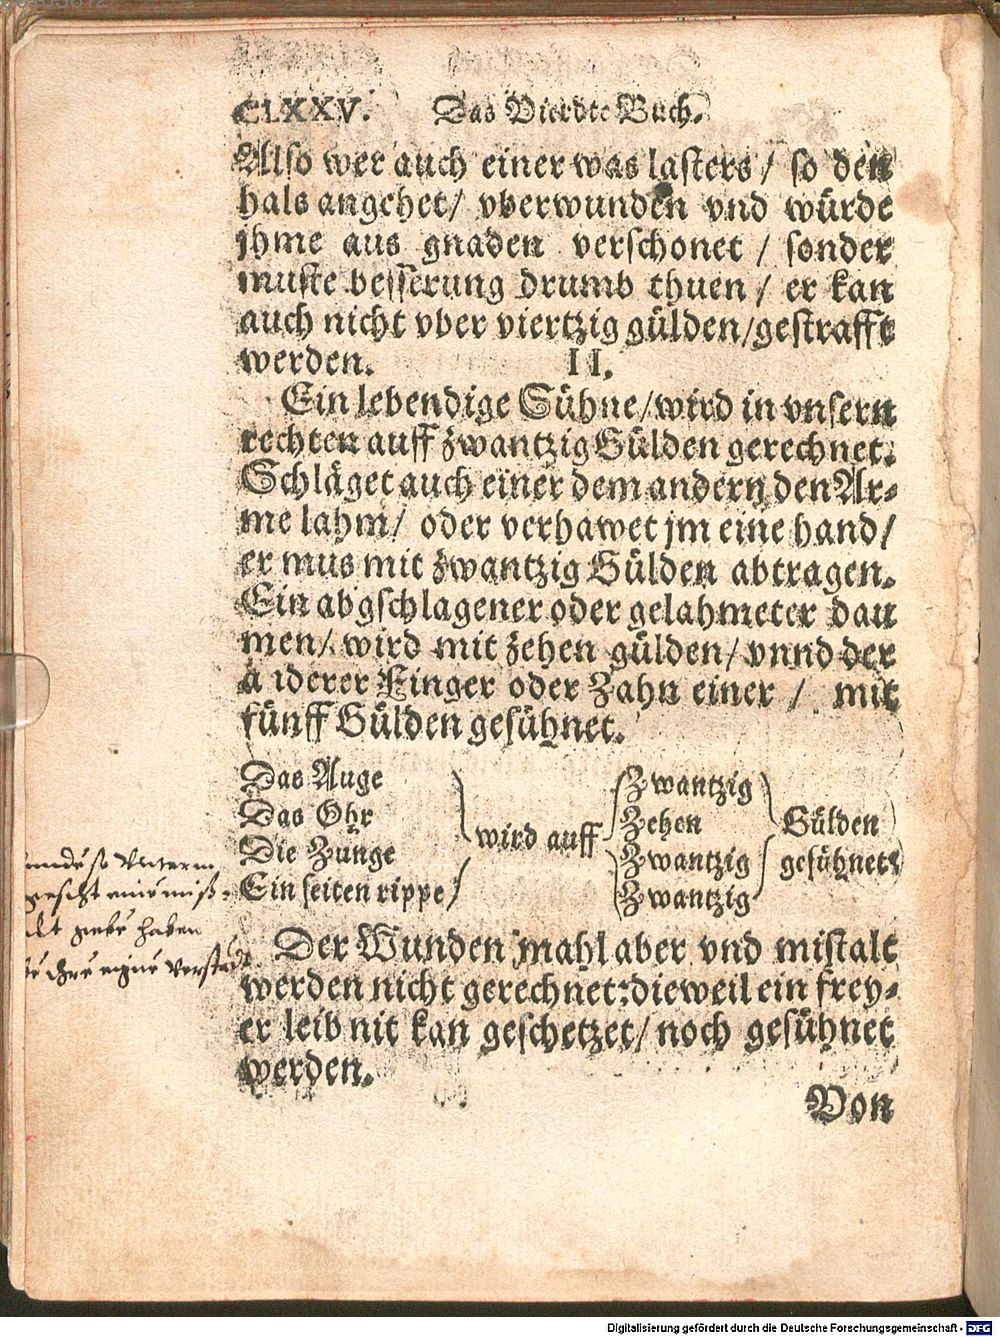 CLXXV. Das Vierdte Buch.
Also wer auch einer was lasters / so den
hals angehet / vberwunden vnd würde
jhme aus gnaden verschonet / sonder
muste besserung drumb thuen / er kan
auch nicht vber viertzig gülden / gestrafft
werden. II.
Ein lebendige Sühne / wird in vnsern
rechten auff zwantzig Gülden gerechnet.
Schläget auch einer dem andern den Ar-
me lahm / oder verhawet jm eine hand /
er mus mit zwantzig Gülden abtragen.
Ein abgschlagener oder gelahmeter dau
men / wird mit zehen gülden / vnnd der
a derer Finger oder Zahn einer / mit
fünff Gülden gesühnet.
Das Auge
Das Ohr
Die Zunge
Ein seiten rippe
wird auff
Zwantzig
Zehen
Zwantzig
Zwantzig
Gülden
gesühnet.
Der Wunden mahl aber vnd mistalt
werden nicht gerechnet: dieweil ein frey-
er leib nit kan geschetzet / noch gesühnet
werden.
Von
haben
Digitalisierung gefördert durch die Deutsche Forschungsgemeinschaft - DFG